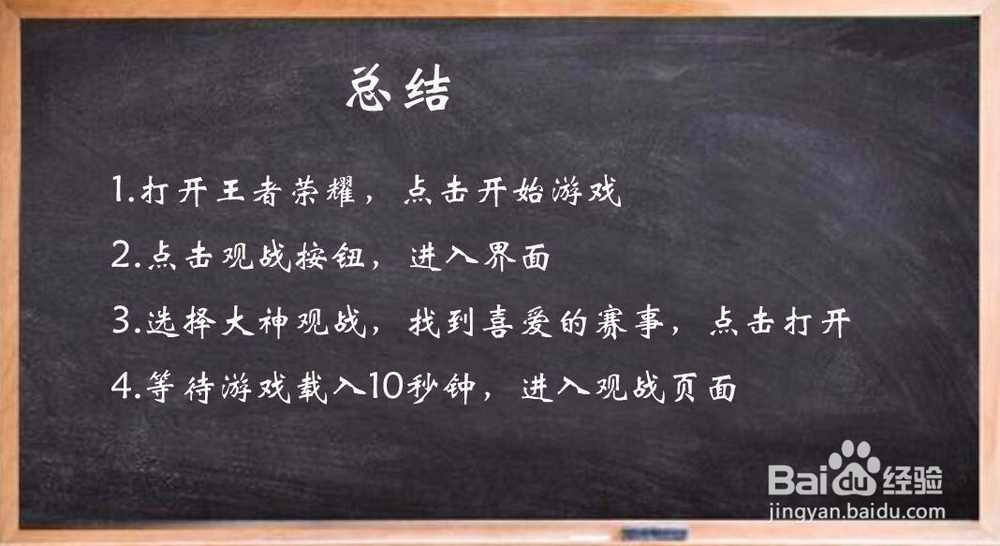 总结
1.打开王者荣耀，点击开始游戏
2.点击观战按钮，进入界面
3.选择大神观战，找到喜爱的赛事，点击打开
4.等待游戏载入10秒钟，进入观战页面
Bai du 经验
jingyan.baidu.com